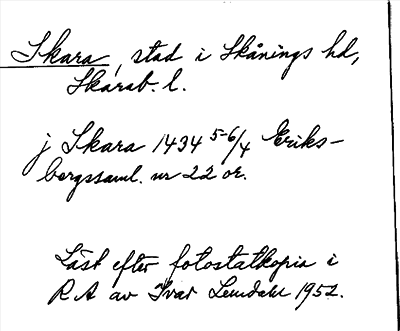 Skara, stad i Skånings hd,
Skarab. l.
j Skara 1434 5-6/4 Eriks-
bergssaml. nr 22 or.
Läst efter fotostatkopia i
R A av Ivar Lundahl 1952.